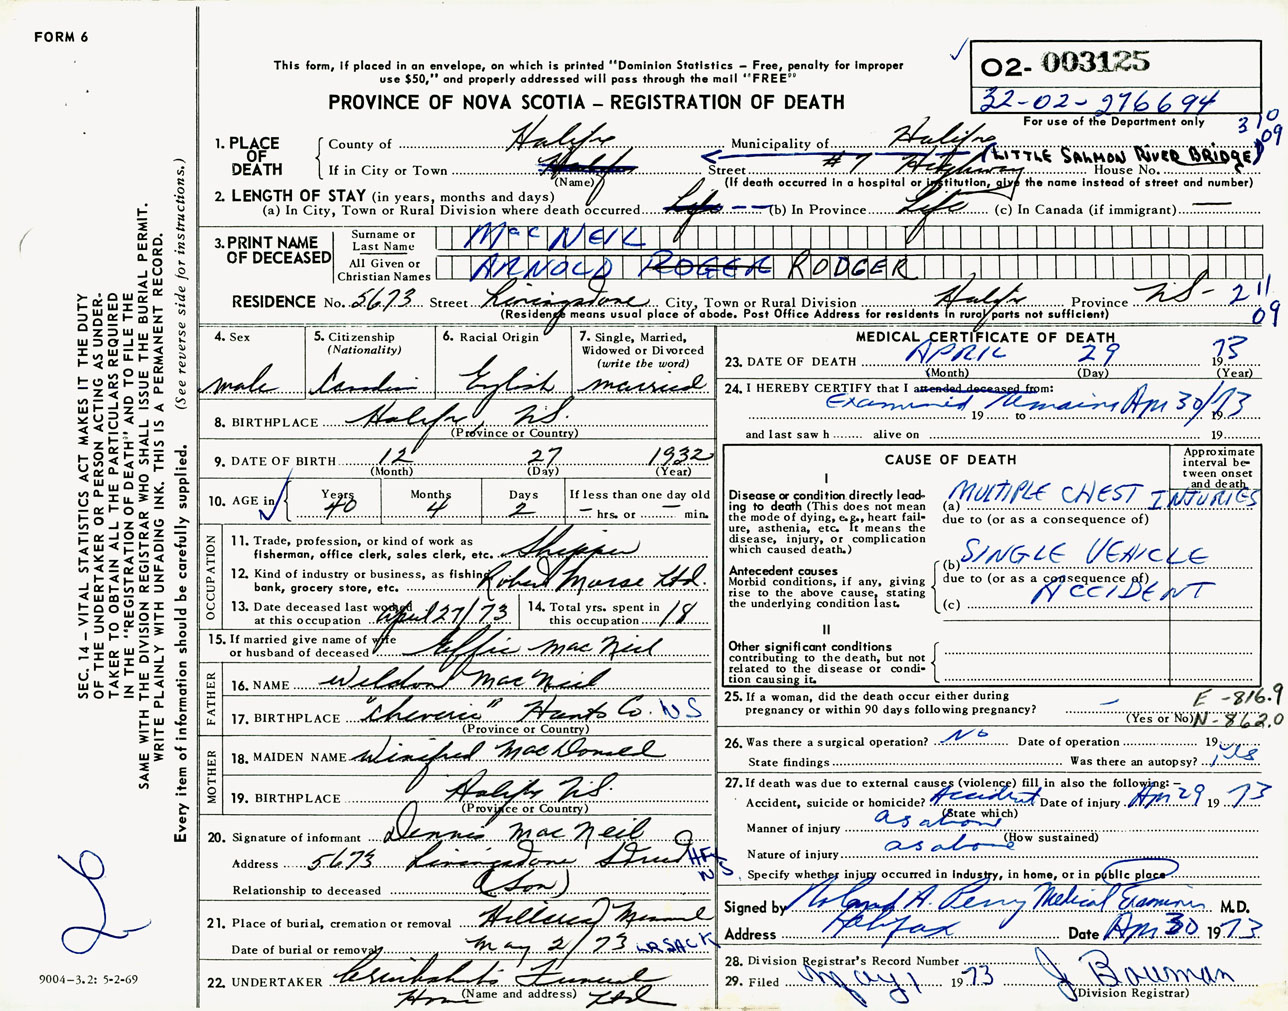 FORM 6
This form, if placed in an envelope, on which is printed "Dominion Statistics – Free, penalty for improper
use $50," and properly addressed will pass through the mail "FREE"
PROVINCE OF NOVA SCOTIA – REGISTRATION OF DEATH
02- 003125
32-02-276694
For use of the Department only
310
09
1. PLACE OF DEATH
County of Halifax Municipality of Halifax
(LITTLE SALMON RIVER BRIDGE)
If in City or Town Halifax Street #7 Highway House No.
(Name) (If death occurred in a hospital or institution, give the name instead of street and number)
2. LENGTH OF STAY (in years, months and days)
(a) In City, Town or Rural Division where death occurred Life -- (b) In Province Life (c) In Canada (if immigrant) —
3. PRINT NAME OF DECEASED
Surname or Last Name MacNEIL
All Given or Christian Names ARNOLD ROGER RODGER
RESIDENCE No. 5673 Street Livingstone City, Town or Rural Division Halifax Province NS- 211
09
(Residence means usual place of abode. Post Office Address for residents in rural parts not sufficient)
4. Sex
male
5. Citizenship
(Nationality)
Canadian
6. Racial Origin
English
7. Single, Married,
Widowed or Divorced
(write the word)
married
8. BIRTHPLACE Halifax, NS.
(Province or Country)
9. DATE OF BIRTH 12 27 1932
(Month) (Day) (Year)
10. AGE in Years Months Days If less than one day old
40 4 2 – hrs. or – min.
OCCUPATION
11. Trade, profession, or kind of work as
fisherman, office clerk, sales clerk, etc. Shipper
12. Kind of industry or business, as fishing,
bank, grocery store, etc. Robert Morse Ltd.
13. Date deceased last worked
at this occupation April 27/73
14. Total yrs. spent in
this occupation 18
15. If married give name of wife
or husband of deceased Effie MacNeil
FATHER
16. NAME Weldon MacNeil
17. BIRTHPLACE "Cheverie" Hants Co. NS
(Province or Country)
MOTHER
18. MAIDEN NAME Winifred MacDonald
19. BIRTHPLACE Halifax N.S.
(Province or Country)
20. Signature of informant Dennis MacNeil
Address 5673 Livingstone Street HFX
NS
Relationship to deceased (Son)
21. Place of burial, cremation or removal Hillside
Date of burial or removal May 2/73 L.R. SACK
22. UNDERTAKER Cruikshanks Funeral
Home Ltd
(Name and address)
MEDICAL CERTIFICATE OF DEATH
23. DATE OF DEATH APRIL 29 1973
(Month) (Day) (Year)
24. I HEREBY CERTIFY that I attended deceased from:
Examined remains Apr 30/73
19 to 19
and last saw h alive on 19
CAUSE OF DEATH
Approximate
interval be-
tween onset
and death
I
Disease or condition directly lead-
ing to death (This does not mean
the mode of dying, e.g., heart fail-
ure, asthenia, etc. It means the
disease, injury, or complication
which caused death.)
(a) MULTIPLE CHEST INJURIES
due to (or as a consequence of)
Antecedent causes
Morbid conditions, if any, giving
rise to the above cause, stating
the underlying condition last.
(b) SINGLE VEHICLE
due to (or as a consequence of)
(c) ACCIDENT
II
Other significant conditions
contributing to the death, but not
related to the disease or condi-
tion causing it.
25. If a woman, did the death occur either during
pregnancy or within 90 days following pregnancy? –
(Yes or No)
E-816.9
N-862.0
26. Was there a surgical operation? No Date of operation 19
State findings Was there an autopsy? yes
27. If death was due to external causes (violence) fill in also the following:–
Accident, suicide or homicide? Accident Date of injury Apr 29 1973
(State which)
Manner of injury as above
(How sustained)
Nature of injury as above
Specify whether injury occurred in industry, in home, or in public place
Signed by Roland A. Perry Medical Examiner M.D.
Address Halifax Date Apr 30 1973
28. Division Registrar's Record Number
29. Filed May 1 1973 J Bowman
(Division Registrar)
SEC. 14 – VITAL STATISTICS ACT MAKES IT THE DUTY
OF THE UNDERTAKER OR PERSON ACTING AS UNDER-
TAKER TO OBTAIN ALL THE PARTICULARS REQUIRED
IN THE "REGISTRATION OF DEATH" AND TO FILE THE
SAME WITH THE DIVISION REGISTRAR WHO SHALL ISSUE THE BURIAL PERMIT.
WRITE PLAINLY WITH UNFADING INK. THIS IS A PERMANENT RECORD.
Every item of information should be carefully supplied. (See reverse side for instructions.)
26
9004–3.2: 5-2-69